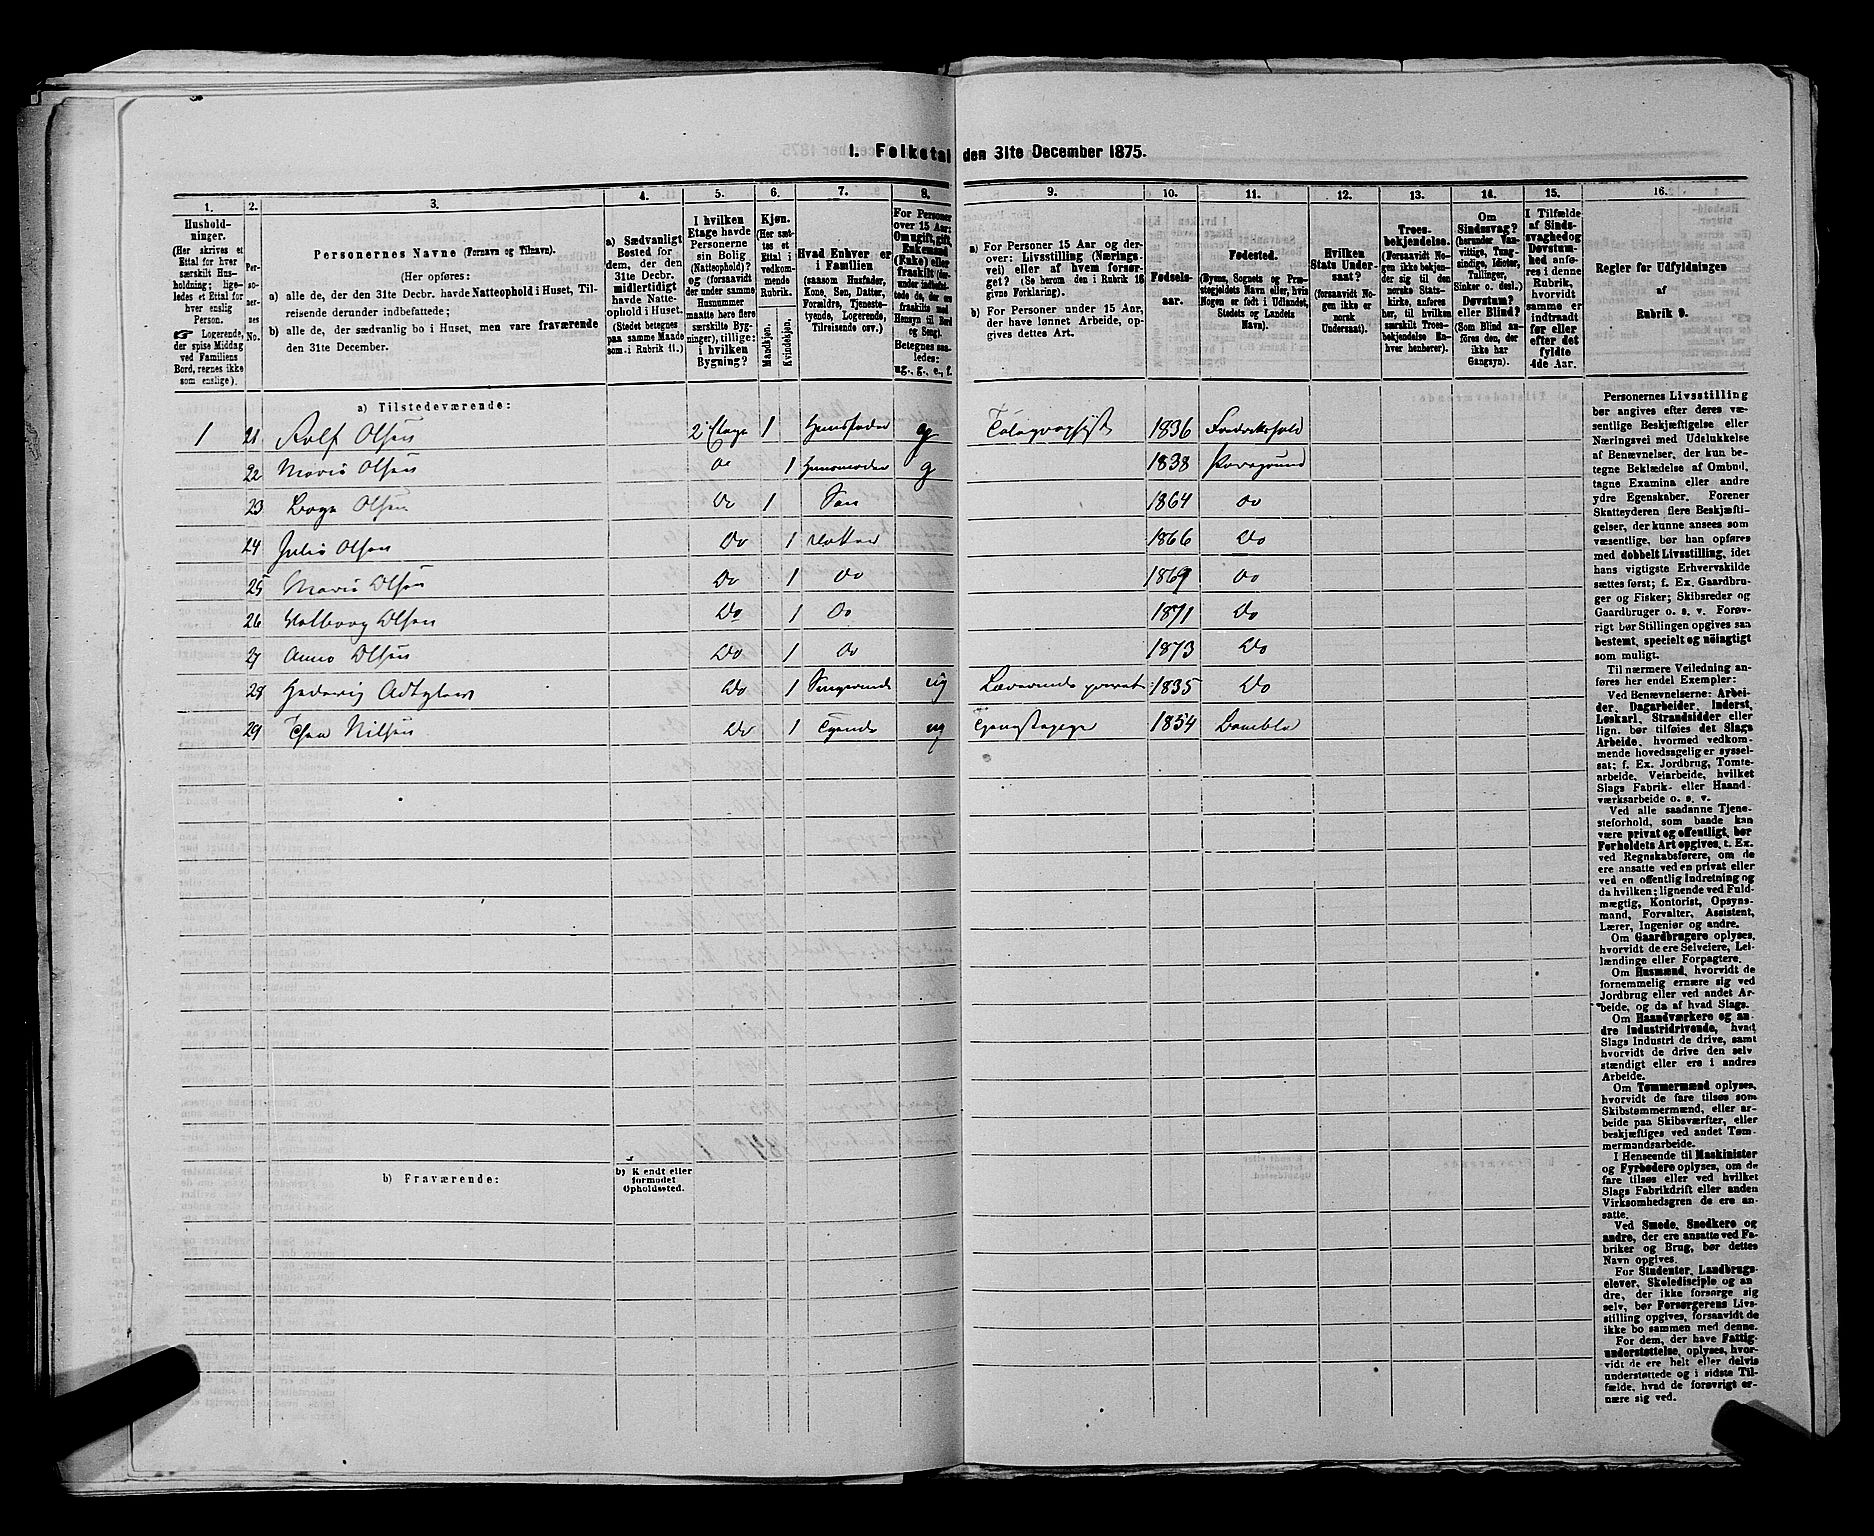 1. Folketal den 31te December 1875.
1. 2. 3. 4. 5. 6. 7. 8. 9. 10. 11. 12. 13. 14. 15. 16.
Husholdninger.
(Her skrives et
Ettal for hver
særskilt Husholdning; ligeledes
et Ettal for
hver enslig
Person.
Logerende,
der spise Middag
ved Familiens
Bord, regnes ikke
som enslige).
Personernes No.
Personernes Navne (Fornavn og Tilnavn).
(Her opføres:
a) alle de, der den 31te Decbr. havde Natteophold i Huset, Tilreisende derunder indbefattede;
b) alle de, der sædvanlig bo i Huset, men vare fraværende
den 31te December.
a) Sædvanligt
Bosted for
dem, der den
31te Decbr.
midlertidigt
havde Natteophold i Huset.
(Stedet betegnes
paa samme Maade
som i Rubrik 11.)
I hvilken
Etage havde
Personerne
sin Bolig
(Natteophold)?
og (forsaavidt
der under samme
Husnummer
maatte høre flere
særskilte Bygninger), tillige:
i hvilken
Bygning?
Kjøn.
(Her sættes et
Ettal i
vedkommende
Rubrik.
Mandkjøn.
Kvindekjøn.
Hvad Enhver er
i Familien
(saasom Husfader,
Kone, Søn, Datter,
Forældre, Tjenestetyende, Logerende,
Tilreisende osv.)
For Personer
over 15 Aar:
Om ugift, gift,
Enkemand
(Enke) eller
fraskilt
Betegnes saaledes:
ug., g., e., f.
a) For Personer 15 Aar og derover: Livsstilling (Næringsvei) eller af hvem forsørget? (Se herom den i Rubrik 16
givne Forklaring).
b) For Personer under 15 Aar,
der have lønnet Arbeide, opgives dettes Art.
Fødselsaar.
Fødested.
(Byens, Sognets og Præstegjeldets Navn eller, hvis
Nogen er født i Udlandet,
Stedets og Landets
Navn).
Hvilken
Stats Undersaat?
(forsaavidt Nogen ikke er
norsk
Undersaat).
Troesbekjendelse.
(Forsaavidt Nogen ikke bekjender sig til den
norske Statskirke, anføres
her, til hvilken
særskilt Troesbekjendelse Enhver henhører).
Om
Sindssvag?
(herunder Vanvittige, Tungsindige, Idioter,
Tullinger,
Sinker o. desl.)
Døvstum?
eller Blind?
(Som Blind anføres den, der
ikke har
Gangsyn).
I Tilfælde
af Sindssvaghed og
Døvstumhed anføres i denne
Rubrik,
hvorvidt
samme er
indtraadt
før eller
efter det
fyldte
4de Aar.
Regler for Udfyldningen
af
Rubrik 9.
a) Tilstedeværende:
1 21 Rolf Olsen 2 Etage 1 Husfader g Telegrafist 1836 Fredrikshald
22 Marie Olsen Do 1 Husmoder g 1838 Porsgrund
23 Olsen Do 1 Søn 1864 Do
24 Julie Olsen Do 1 Datter 1866 Do
25 Marie Olsen Do 1 Do 1869 Do
26 Valborg Olsen Do 1 Do 1871 Do
27 Anna Olsen Do 1 Do 1873 Do
28 Hedevig Do 1 ug Lærerinde privat 1835 Do
29 Thea Nilsen Do 1 Tyende ug 1854 Bamble
b) Fraværende:
b) Kjendt eller
formodet
Opholdssted.
Personernes Livsstilling
bør angives efter deres væsentlige Beskjæftigelse eller
Næringsvei med Udelukkelse
af Benævnelser, der kun betegne Beklædelse af Ombud,
tagne Examina eller andre
ydre Egenskaber. Forener
Skatteyderen flere Beskjæftigelser, der kunne ansees som
væsentlige, bør han opføres
med dobbelt Livsstilling, idet
hans vigtigste Erhvervskilde
sættes først; f. Ex. Gaardbruger og Fisker; Skibsreder og
Gaardbruger o. s. v. Forøvrigt bør Stillingen opgives saa
bestemt, specielt og nöiagtigt
som muligt.
Til nærmere Veiledning anføres her endel Exempler:
Ved Benævnelserne: Arbeider, Dagarbeider, Inderst,
Løskarl, Strandsidder eller
lign. bør tilføies det Slags
Arbeide, hvormed vedkommende hovedsagelig er sysselsat; f. Ex. Jordbrug, Tomtearbeide, Veiarbeide, hvilket
Slags Fabrik- eller Haandværksarbeide o. s. v.
Ved alle saadanne Tjenesteforhold, som baade kan
være privat og offentligt, bør
Forholdets Art opgives, t. Ex.
ved Regnskabsførere, om de
ere ansatte ved en privat eller
ved en offentlig Indretning og
da hvilken; lignende ved Fuldmægtig, Kontorist, Opsynsmand, Forvalter, Assistent,
Lærer, Ingeniør og andre.
Om Gaardbrugere oplyses,
hvorvidt de ere Selveiere, Leilændinge eller Forpagtere.
Om Husmænd, hvorvidt de
fornemmelig ernære sig ved
Jordbrug eller ved andet Arbeide, og da af hvad Slags.
Om Haandværkere og andre Industridrivende, hvad
Slags Industri de drive, samt
hvorvidt de drive den selvstændigt eller ere i andres
Arbeide.
Om Tømmermænd oplyses,
hvorvidt de fare tilsøs som
Skibstømmermænd, eller arbeide paa Skibsværfter, eller
beskjæftiges ved andet Tømmermandsarbeide.
I Henseende til Maskinister
og Fyrbødere oplyses, om de
fare tilsøs eller ved hvilket
Slags Fabrikdrift eller anden
Virksomhedsgren de ere ansatte.
Ved Smede, Snedkere og
andre, der ere ansatte ved Fabriker og Brug, bør dettes
Navn opgives.
For Studenter, Landbrugselever, Skoledisciple og andre, der ikke forsørge sig
selv, bør Forsørgerens Livsstilling opgives, forsaavidt de
ikke bo sammen med denne.
For dem, der have Fattigunderstøttelse, oplyses, hvorvidt de ere helt eller delvis
understøttede og i sidste Tilfælde, hvad de forøvrigt ernære sig ved.